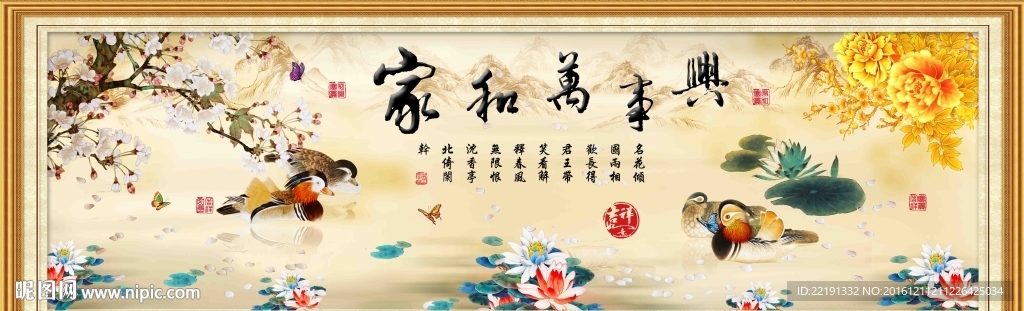 家和萬事興
名花傾
國兩相
歡長得
君王帶
笑看解
釋春風
無限恨
沈香亭
北倚闌
幹
昵图网 www.nipic.com
ID:22191332 NO:20161211211226425034